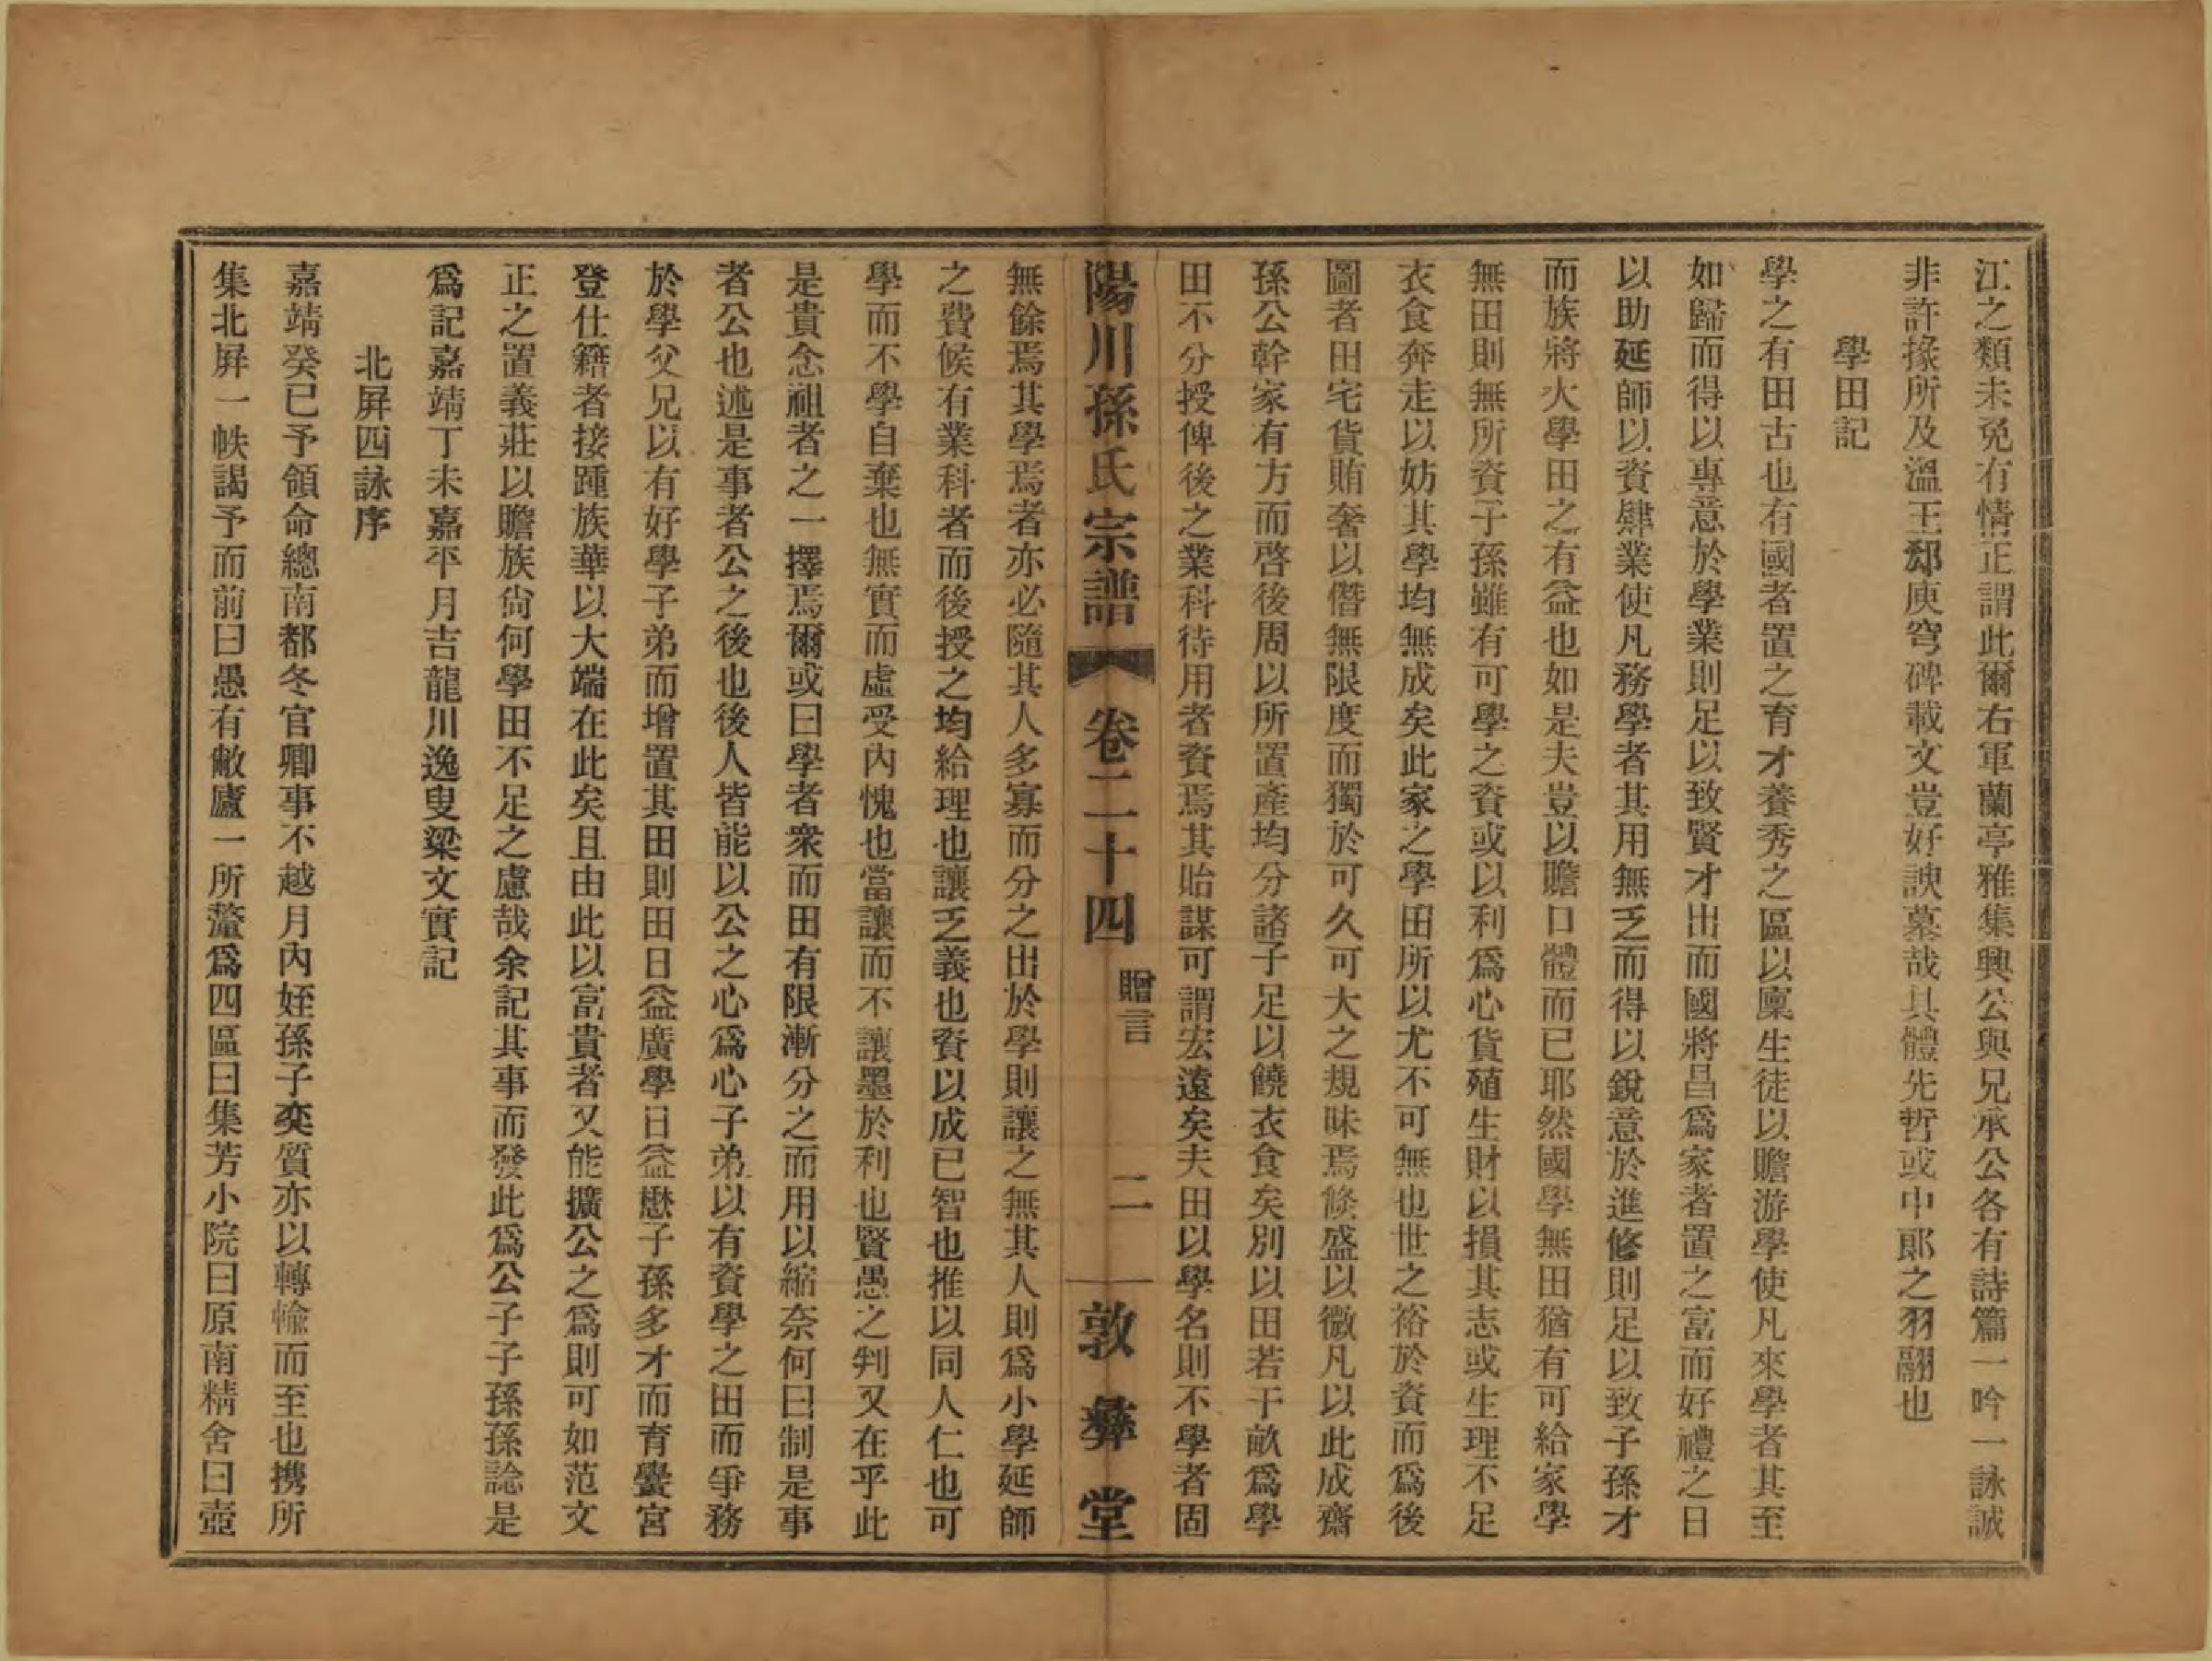 江之類未免有情正謂此爾右軍蘭亭雅集興公與兄承公各有詩篇一吟一詠誠
非許掾所及溫王郄庾穹碑載文豈好諛墓哉具體先哲或中郎之羽翮也
學田記
學之有田古也有國者置之育才養秀之區以廩生徒以贍游學使凡來學者其至
如歸而得以專意於學業則足以致賢才出而國將昌爲家者置之富而好禮之日
以助延師以資肆業使凡務學者其用無乏而得以銳意於進修則足以致子孫才
而族將大學田之有益也如是夫豈以贍口體而已耶然國學無田猶有可給家學
無田則無所資子孫雖有可學之資或以利爲心貨殖生財以損其志或生理不足
衣食奔走以妨其學均無成矣此家之學田所以尤不可無也世之裕於資而爲後
圖者田宅貨賄奢以僭無限度而獨於可久可大之規昧焉倏盛以微凡以此成齋
孫公幹家有方而啓後周以所置產均分諸子足以饒衣食矣別以田若干畝爲學
田不分授俾後之業科待用者資焉其貽謀可謂宏遠矣夫田以學名則不學者固
陽川孫氏宗譜 卷二十四 贈言 二 敦彝堂
無餘焉其學焉者亦必隨其人多寡而分之出於學則讓之無其人則爲小學延師
之費候有業科者而後授之均給理也讓乏義也資以成已智也推以同人仁也可
學而不學自棄也無實而虛受內愧也當讓而不讓墨於利也賢愚之判又在乎此
是貴念祖者之一擇焉爾或曰學者衆而田有限漸分之而用以縮奈何曰制是事
者公也述是事者公之後也後人皆能以公之心爲心子弟以有資學之田而爭務
於學父兄以有好學子弟而增置其田則田日益廣學日益懋子孫多才而育黌宮
登仕籍者接踵族華以大端在此矣且由此以富貴者又能擴公之爲則可如范文
正之置義莊以贍族尙何學田不足之慮哉余記其事而發此爲公子子孫孫諗是
爲記嘉靖丁未嘉平月吉龍川逸叟梁文實記
北屛四詠序
嘉靖癸已予領命總南都冬官卿事不越月內姪孫子奕質亦以轉輸而至也攜所
集北屛一帙謁予而前曰愚有敝廬一所釐爲四區曰集芳小院曰原南精舍曰壺